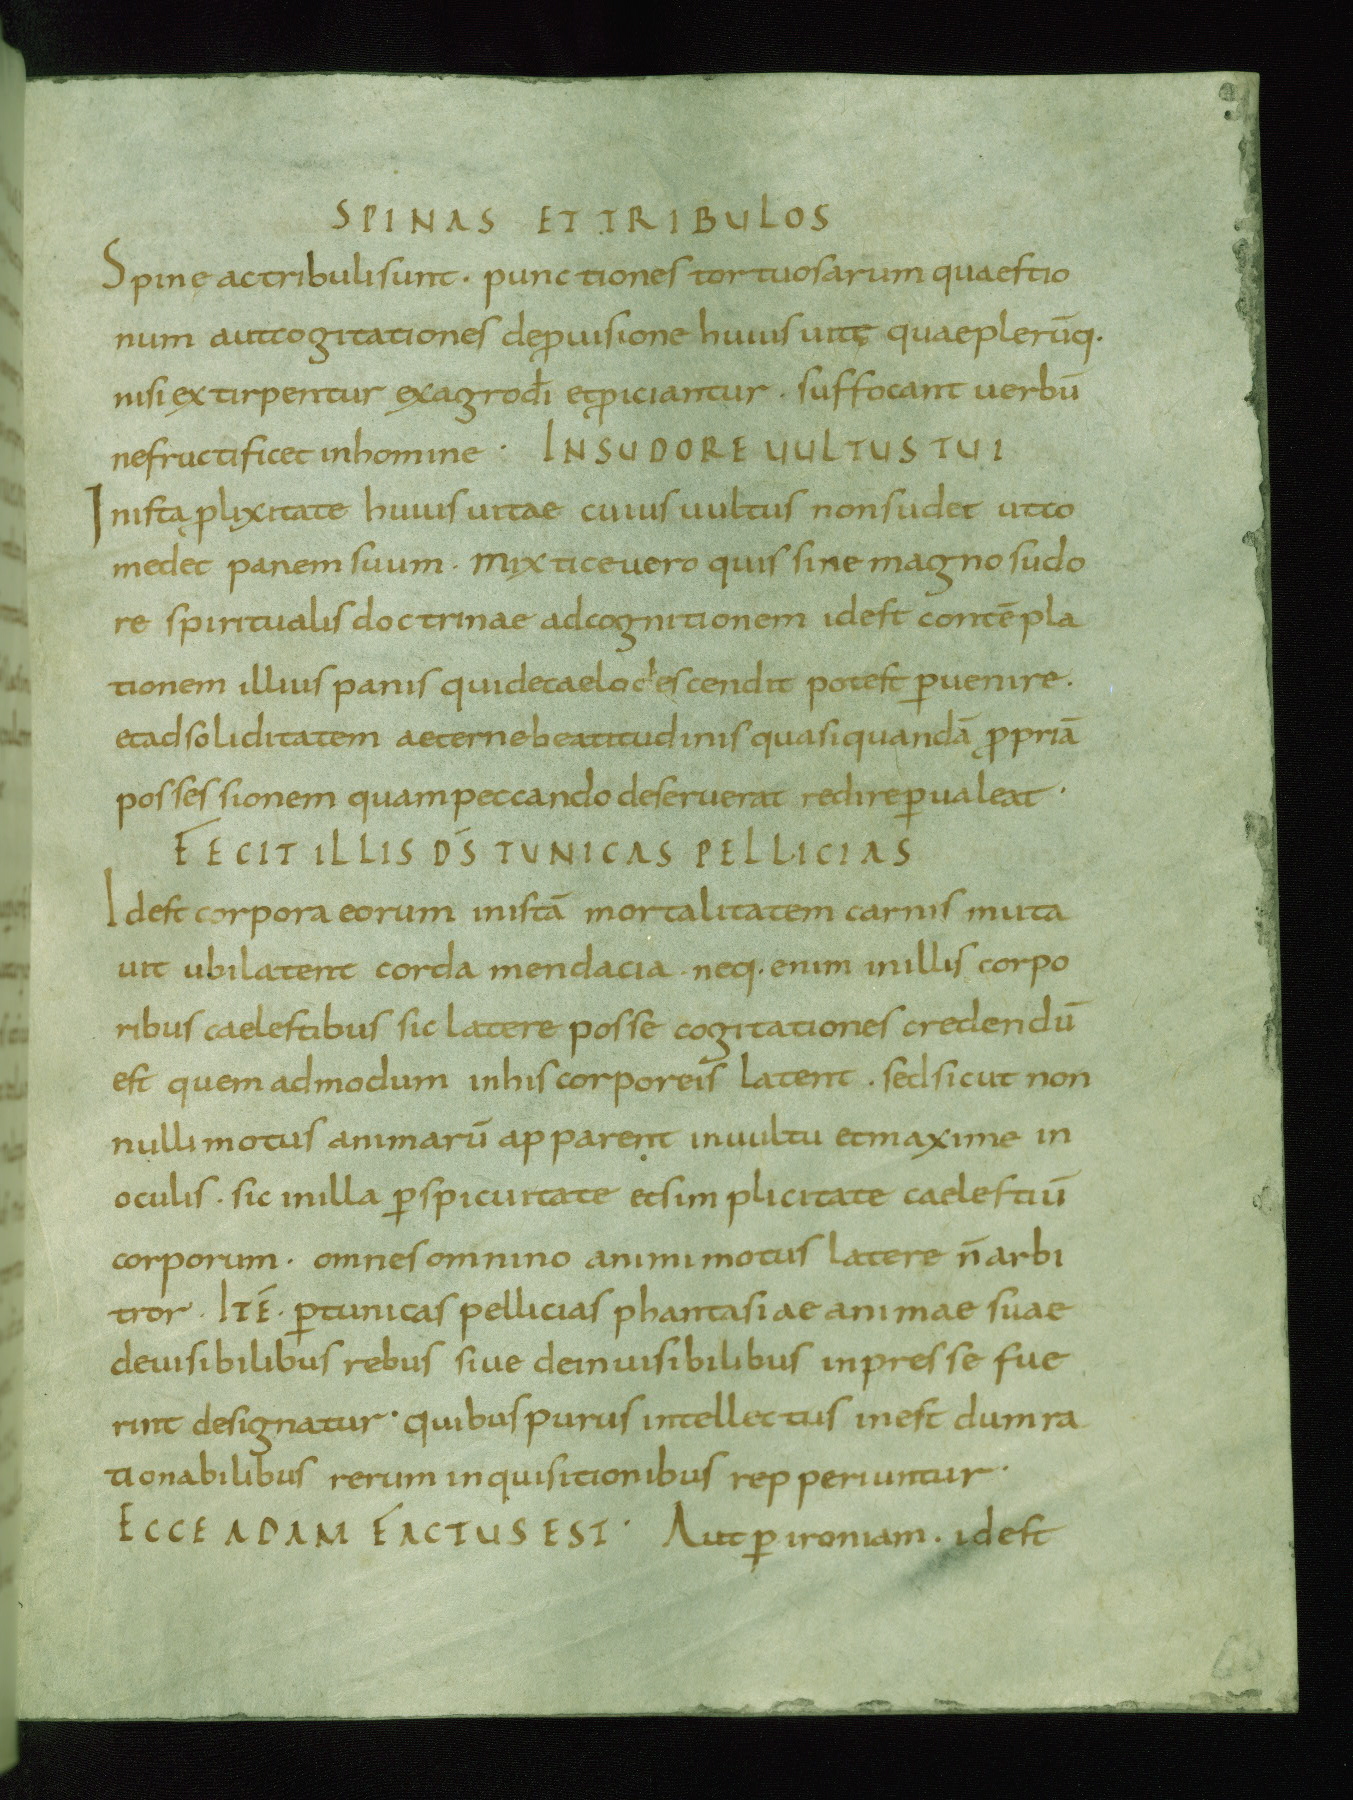 SPINAS ET TRIBULOS
Spinę ac tribuli sunt · punctiones tortuosarum quaestio
num aut cogitationes de ꝓuisione huius uitę quae plerūq·
nisi extirpentur ex agro dī et ꝓiciantur · suffocant uerbū
ne fructificet in homine · IN SUDORE UULTUS TUI
In ista ꝓlixitate huius uitae cuius uultus non sudet ut co
medet panem suum · Mixtice uero quis sine magno sudo
re spiritualis doctrinae ad cognitionem id est contēpla
tionem illius panis qui de caelo descendit potest ꝑuenire ·
et ad soliditatem aeterne beatitudinis quasi quandā ꝓpriā
possessionem quam peccando deseruerat redire ꝑualeat ·
FECIT ILLIS DS̄ TUNICAS PELLICIAS
Id est corpora eorum in istā mortalitatem carnis muta
uit ubi latent corda mendacia · neq· enim in illis corpo
ribus caelestibus sic latere posse cogitationes credendū
est quem admodum in his corporeis latent · sed sicut non
nulli motus animarū apparent in uultu et maxime in
oculis · sic in illa ꝑspicuitate et simplicitate caelestiū
corporum · omnes omnino animi motus latere n̄ arbi
tror · ITĒ · ꝑ tunicas pellicias phantasiae animae suae
de uisibilibus rebus siue de inuisibilibus inpresse fue
rint designatur · quibus purus intellectus inest dum ra
tionabilibus rerum inquisitionibus repperiuntur ·
ECCE ADAM FACTUS EST · Aut ꝑ ironiam · id est